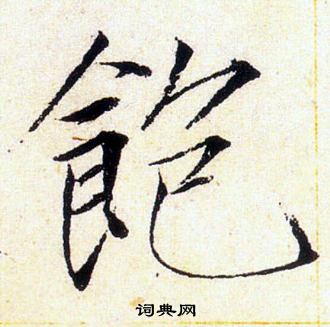 飽
词典网